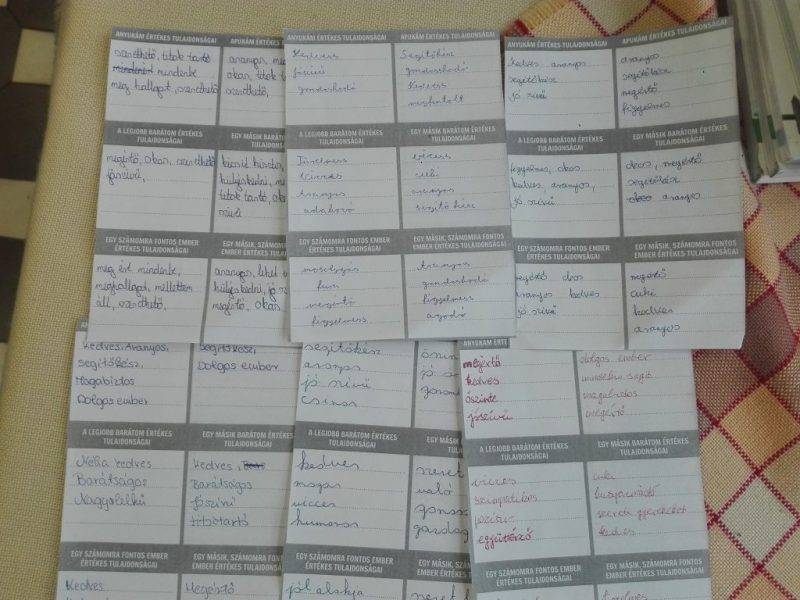 ANYUKÁM ÉRTÉKES TULAJDONSÁGAI
szerethető, titok tartó
mindenkit mindenkit
meg hallgat, szerethető
APUKÁM ÉRTÉKES TULAJDONSÁGAI
aranyos,
okos, titok
szerethető,
A LEGJOBB BARÁTOM ÉRTÉKES
TULAJDONSÁGAI
megértő, okos, szerethető
jószívű,
EGY MÁSIK BARÁTOM
TULAJDONSÁGAI
hülyéskedni,
titok tartó,
EGY SZÁMOMRA FONTOS EMBER
ÉRTÉKES TULAJDONSÁGAI
meg ért mindenkit,
meghallgat, mellettem
áll, szerethető,
EGY MÁSIK, SZÁMOMRA
EMBER ÉRTÉKES TULAJDONSÁGAI
aranyos, lehet
hülyéskedni, jó
megértő, okos
ANYUKÁM ÉRTÉKES TULAJDONSÁGAI
Kedves
jószívű
gondoskodó
APUKÁM ÉRTÉKES TULAJDONSÁGAI
Segítőkész
gondoskodó
Kedves
A LEGJOBB BARÁTOM ÉRTÉKES
TULAJDONSÁGAI
Türelmes
Vicces
Aranyos
EGY MÁSIK BARÁTOM ÉRTÉKES
TULAJDONSÁGAI
vicces
cuki
aranyos
segítőkész
EGY SZÁMOMRA FONTOS EMBER
ÉRTÉKES TULAJDONSÁGAI
mosolygós
megértő
figyelmes
EGY MÁSIK, SZÁMOMRA FONTOS
EMBER ÉRTÉKES TULAJDONSÁGAI
Aranyos
gondoskodó
figyelmes
ANYUKÁM ÉRTÉKES TULAJDONSÁGAI
kedves aranyos
segítőkész
jó szívű
APUKÁM ÉRTÉKES TULAJDONSÁGAI
aranyos
segítőkész
megértő
figyelmes
A LEGJOBB BARÁTOM ÉRTÉKES
TULAJDONSÁGAI
figyelmes, okos
kedves, aranyos,
jó szívű
EGY MÁSIK BARÁTOM ÉRTÉKES
TULAJDONSÁGAI
okos, megértő
segítőkész
okos aranyos
SZÁMOMRA FONTOS EMBER
ÉRTÉKES TULAJDONSÁGAI
megértő okos
aranyos kedves
jó szívű
EGY MÁSIK, SZÁMOMRA FONTOS
EMBER ÉRTÉKES TULAJDONSÁGAI
megértő
cuki
kedves
aranyos
Kedves, Aranyos,
segítőkész,
Magabiztos
Dolgos ember
Segítőkész,
Dolgos ember
A LEGJOBB BARÁTOM ÉRTÉKES
TULAJDONSÁGAI
Néha kedves
Barátságos
Nagylelkű
EGY MÁSIK BARÁTOM ÉRTÉKES
TULAJDONSÁGAI
Kedves
Barátságos
Jószívű
titoktartó
EGY SZÁMOMRA FONTOS EMBER
ÉRTÉKES TULAJDONSÁGAI
Kedves
EGY MÁSIK, SZÁMOMRA FONTOS
EMBER ÉRTÉKES TULAJDONSÁGAI
Megértő
segítőkész
aranyos
jó szívű
csinos
A LEGJOBB BARÁTOM ÉRTÉKES
TULAJDONSÁGAI
kedves
magas
vicces
humoros
EGY MÁSIK BARÁTOM
TULAJDONSÁGAI
EGY SZÁMOMRA FONTOS EMBER
ÉRTÉKES TULAJDONSÁGAI
jó alakja
EGY MÁSIK, SZÁMOMRA
EMBER ÉRTÉKES
ANYUKÁM ÉRTÉ
megértő
kedves
őszinte
jószívű
dolgos ember
mindenben segít
magabiztos
megértő
A LEGJOBB BARÁTOM ÉRTÉKES
TULAJDONSÁGAI
vicces
szimpatikus
együttérző
EGY MÁSIK BARÁTOM ÉRTÉKES
TULAJDONSÁGAI
cuki
szereti gyerekeket
kedves
EGY SZÁMOMRA FONTOS EMBER
ÉRTÉKES TULAJDONSÁGAI
EGY MÁSIK, SZÁMOMRA FONTOS
EMBER ÉRTÉKES TULAJDONSÁGAI